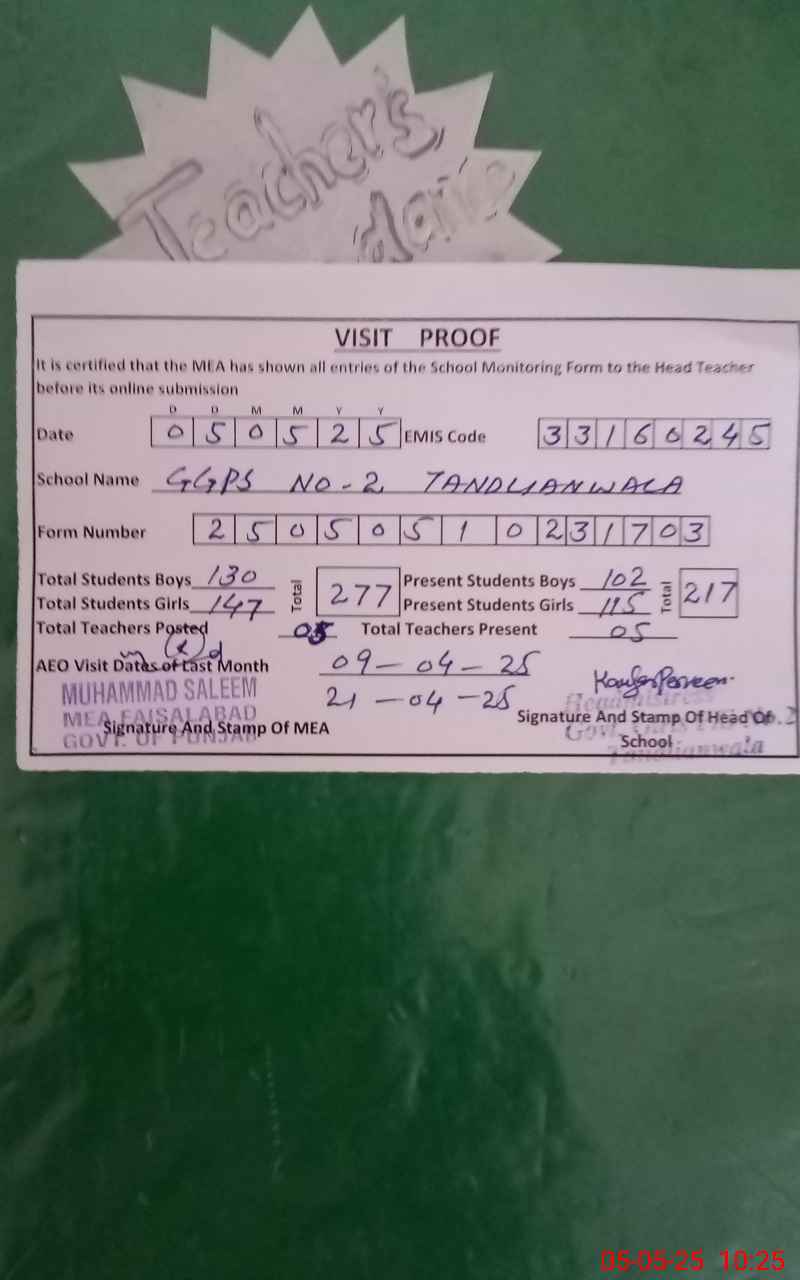 Teacher's
VISIT PROOF
It is certified that the MEA has shown all entries of the School Monitoring Form to the Head Teacher
before its online submission
D D M M Y Y
Date 0 5 0 5 2 5 EMIS Code 3 3 1 6 0 2 4 5
School Name GGPS NO-2 TANDLIANWALA
Form Number 2 5 0 5 0 5 1 0 2 3 1 7 0 3
Total Students Boys 130 Total 277 Present Students Boys 102 Total 217
Total Students Girls 147 Present Students Girls 115
Total Teachers Posted 05 Total Teachers Present 05
AEO Visit Dates of Last Month 09-04-25
21-04-25
MUHAMMAD SALEEM
MEA FAISALABAD
GOVT. OF PUNJAB
Signature And Stamp Of MEA
Kausar Parveen
Headmistress
Signature And Stamp Of Head Of
School
Tandlianwala
05-05-25 10:25